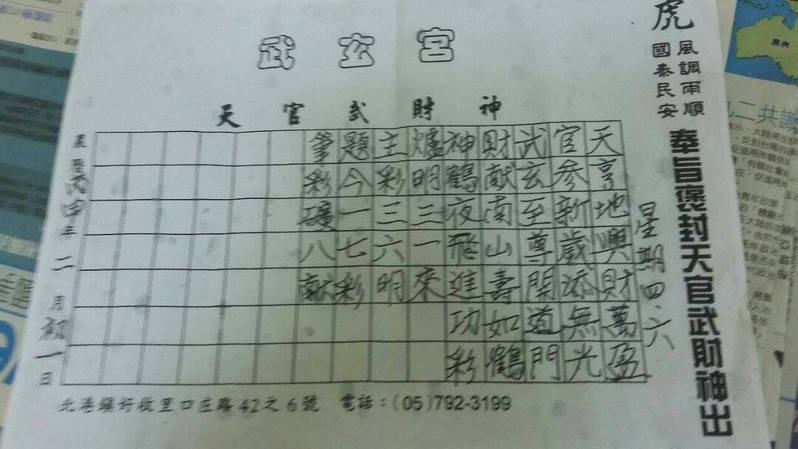 武玄宮
天官武財神
虎
風調雨順
國泰民安
奉旨褒封天官武財神出
星期四.六
天亨地興財萬盈
官參新歲添無光
武玄至尊開道門
財獻南山壽如鶴
神鶴夜飛進功彩
爐明三一來
主彩三六明
題今一七彩
筆彩八獻
農曆丙申年二月初一日
北港鎮好收里口庄路42之6號 電話:(05)792-3199
二共識